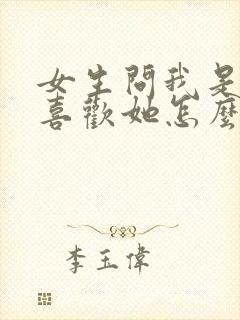 女生問我是
喜歡她怎麼
李玉偉